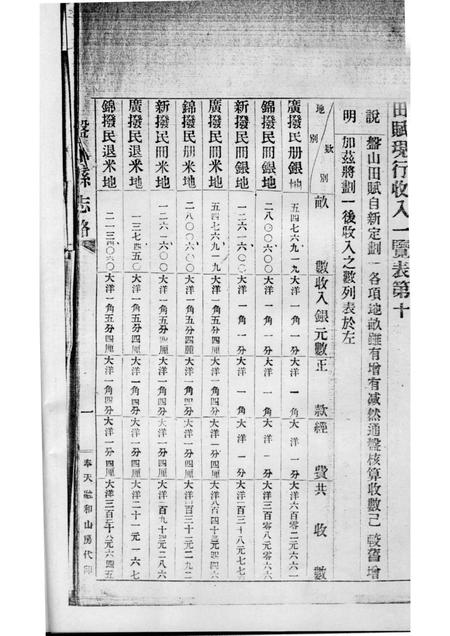 田賦現行收入一覽表第十
說 盤山田賦自新定劃一各項地畝雖有增有減然通盤核算收數已較舊增
明 加茲將劃一後收入之數列表於左
地別 數別 畝數 收入銀元數 正款 經費 共收數
廣撥民冊銀地 五四七六九一九 大洋一角一分 大洋一角 大洋一分 大洋六百零二元六六一
錦撥民冊銀地 二八〇〇六〇〇 大洋一角一分 大洋一角 大洋一分 大洋三百零八元〇六六
新撥民冊銀地 一二六一六〇〇 大洋一角一分 大洋一角 大洋一分 大洋一百三十八元七七
廣撥民冊米地 五四七六九一九 大洋一角五分四厘 大洋一角四分 大洋一分四厘 大洋八百四十三元
錦撥民冊米地 二八〇〇六〇〇 大洋一角五分四厘 大洋一角四分 大洋一分四厘 大洋
新撥民冊米地 一二六一六〇〇 大洋一角五分四厘 大洋一角四分 大洋一分四厘 大洋一百九十四元二八六
廣撥民退米地 一三七四五〇 大洋一角五分四厘 大洋一角四分 大洋一分四厘 大洋二十一元一六七
錦撥民退米地 二一三四〇六〇 大洋一角五分四厘 大洋一角四分 大洋一分四厘 大洋三百二十八元六四五
盤山縣志略
一
奉天融和山房代印